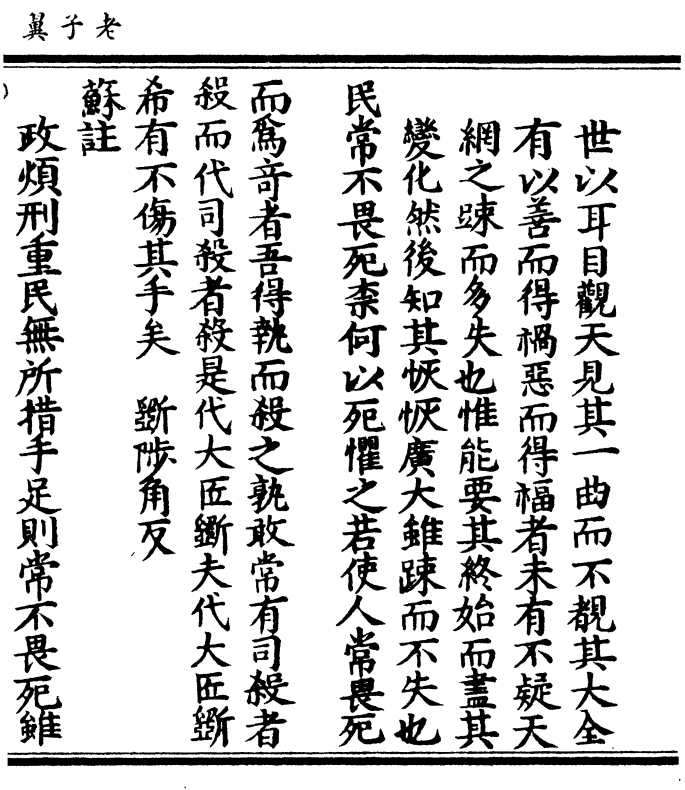 老子翼
世以耳目觀天見其一曲而不覩其大全
有以善而得禍惡而得福者未有不疑天
網之踈而多失也惟能要其終始而盡其
變化然後知其恢恢廣大雖踈而不失也
民常不畏死柰何以死懼之若使人常畏死
而爲竒者吾得執而殺之孰敢常有司殺者
殺而代司殺者殺是代大匠斵夫代大匠斵
希有不傷其手矣 斵陟角反
蘇註
政煩刑重民無所措手足則常不畏死雖